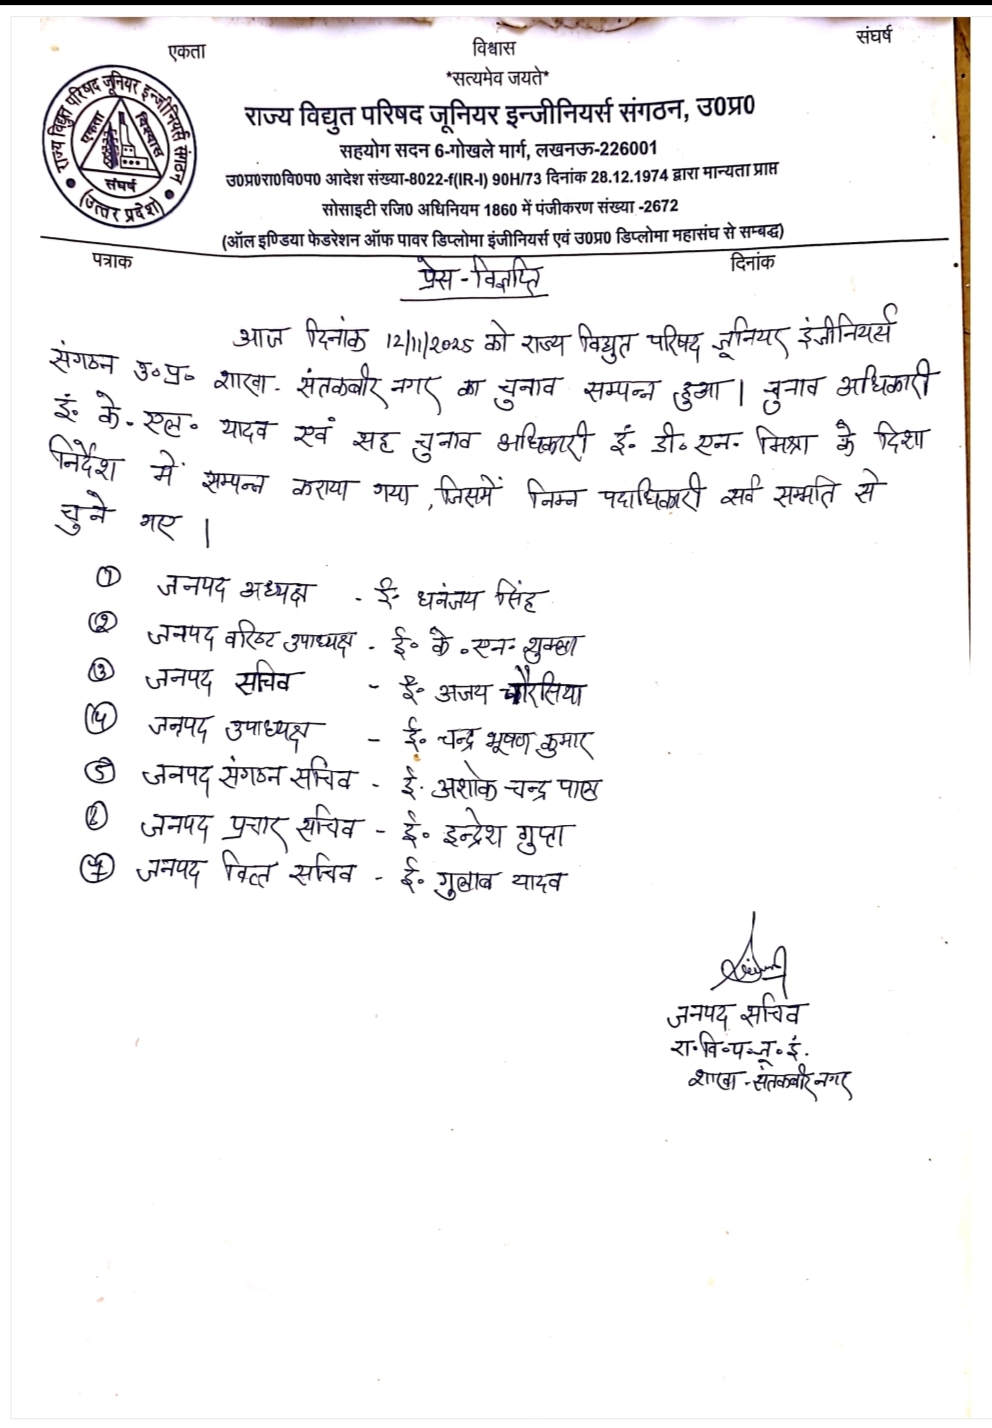 एकता विश्वास संघर्ष
*सत्यमेव जयते*
राज्य विद्युत परिषद जूनियर इन्जीनियर्स संगठन, उ0प्र0
सहयोग सदन 6-गोखले मार्ग, लखनऊ-226001
उ0प्र0रा0वि0प0 आदेश संख्या-8022-f(IR-I) 90H/73 दिनांक 28.12.1974 द्वारा मान्यता प्राप्त
सोसाइटी रजि0 अधिनियम 1860 में पंजीकरण संख्या -2672
(ऑल इण्डिया फेडरेशन ऑफ पावर डिप्लोमा इंजीनियर्स एवं उ0प्र0 डिप्लोमा महासंघ से सम्बद्ध)
राज्य विद्युत परिषद जूनियर इन्जीनियर्स संगठन
एकता विश्वास
संघर्ष
(उत्तर प्रदेश)
पत्राक दिनांक
प्रेस-विज्ञप्ति
आज दिनांक 12/11/2025 को राज्य विद्युत परिषद जूनियर इंजीनियर्स
संगठन उ०प्र० शाखा- संतकबीर नगर का चुनाव सम्पन्न हुआ । चुनाव अधिकारी
इं० के० एल० यादव एवं सह चुनाव अधिकारी इं० डी०एन० मिश्रा के दिशा
निर्देश में सम्पन्न कराया गया, जिसमें निम्न पदाधिकारी सर्व सम्मति से
चुने गए ।
① जनपद अध्यक्ष - ई० धनंजय सिंह
② जनपद वरिष्ट उपाध्यक्ष - ई० के०एन० शुक्ला
③ जनपद सचिव - ई० अजय चौरसिया
④ जनपद उपाध्यक्ष - ई० चन्द्र भूषण कुमार
⑤ जनपद संगठन सचिव - ई० अशोक चन्द्र पाल
⑥ जनपद प्रचार सचिव - ई० इन्द्रेश गुप्ता
⑦ जनपद वित्त सचिव - ई० गुलाब यादव
जनपद सचिव
रा०वि०प०जू०इं०
शाखा-संतकबीर नगर